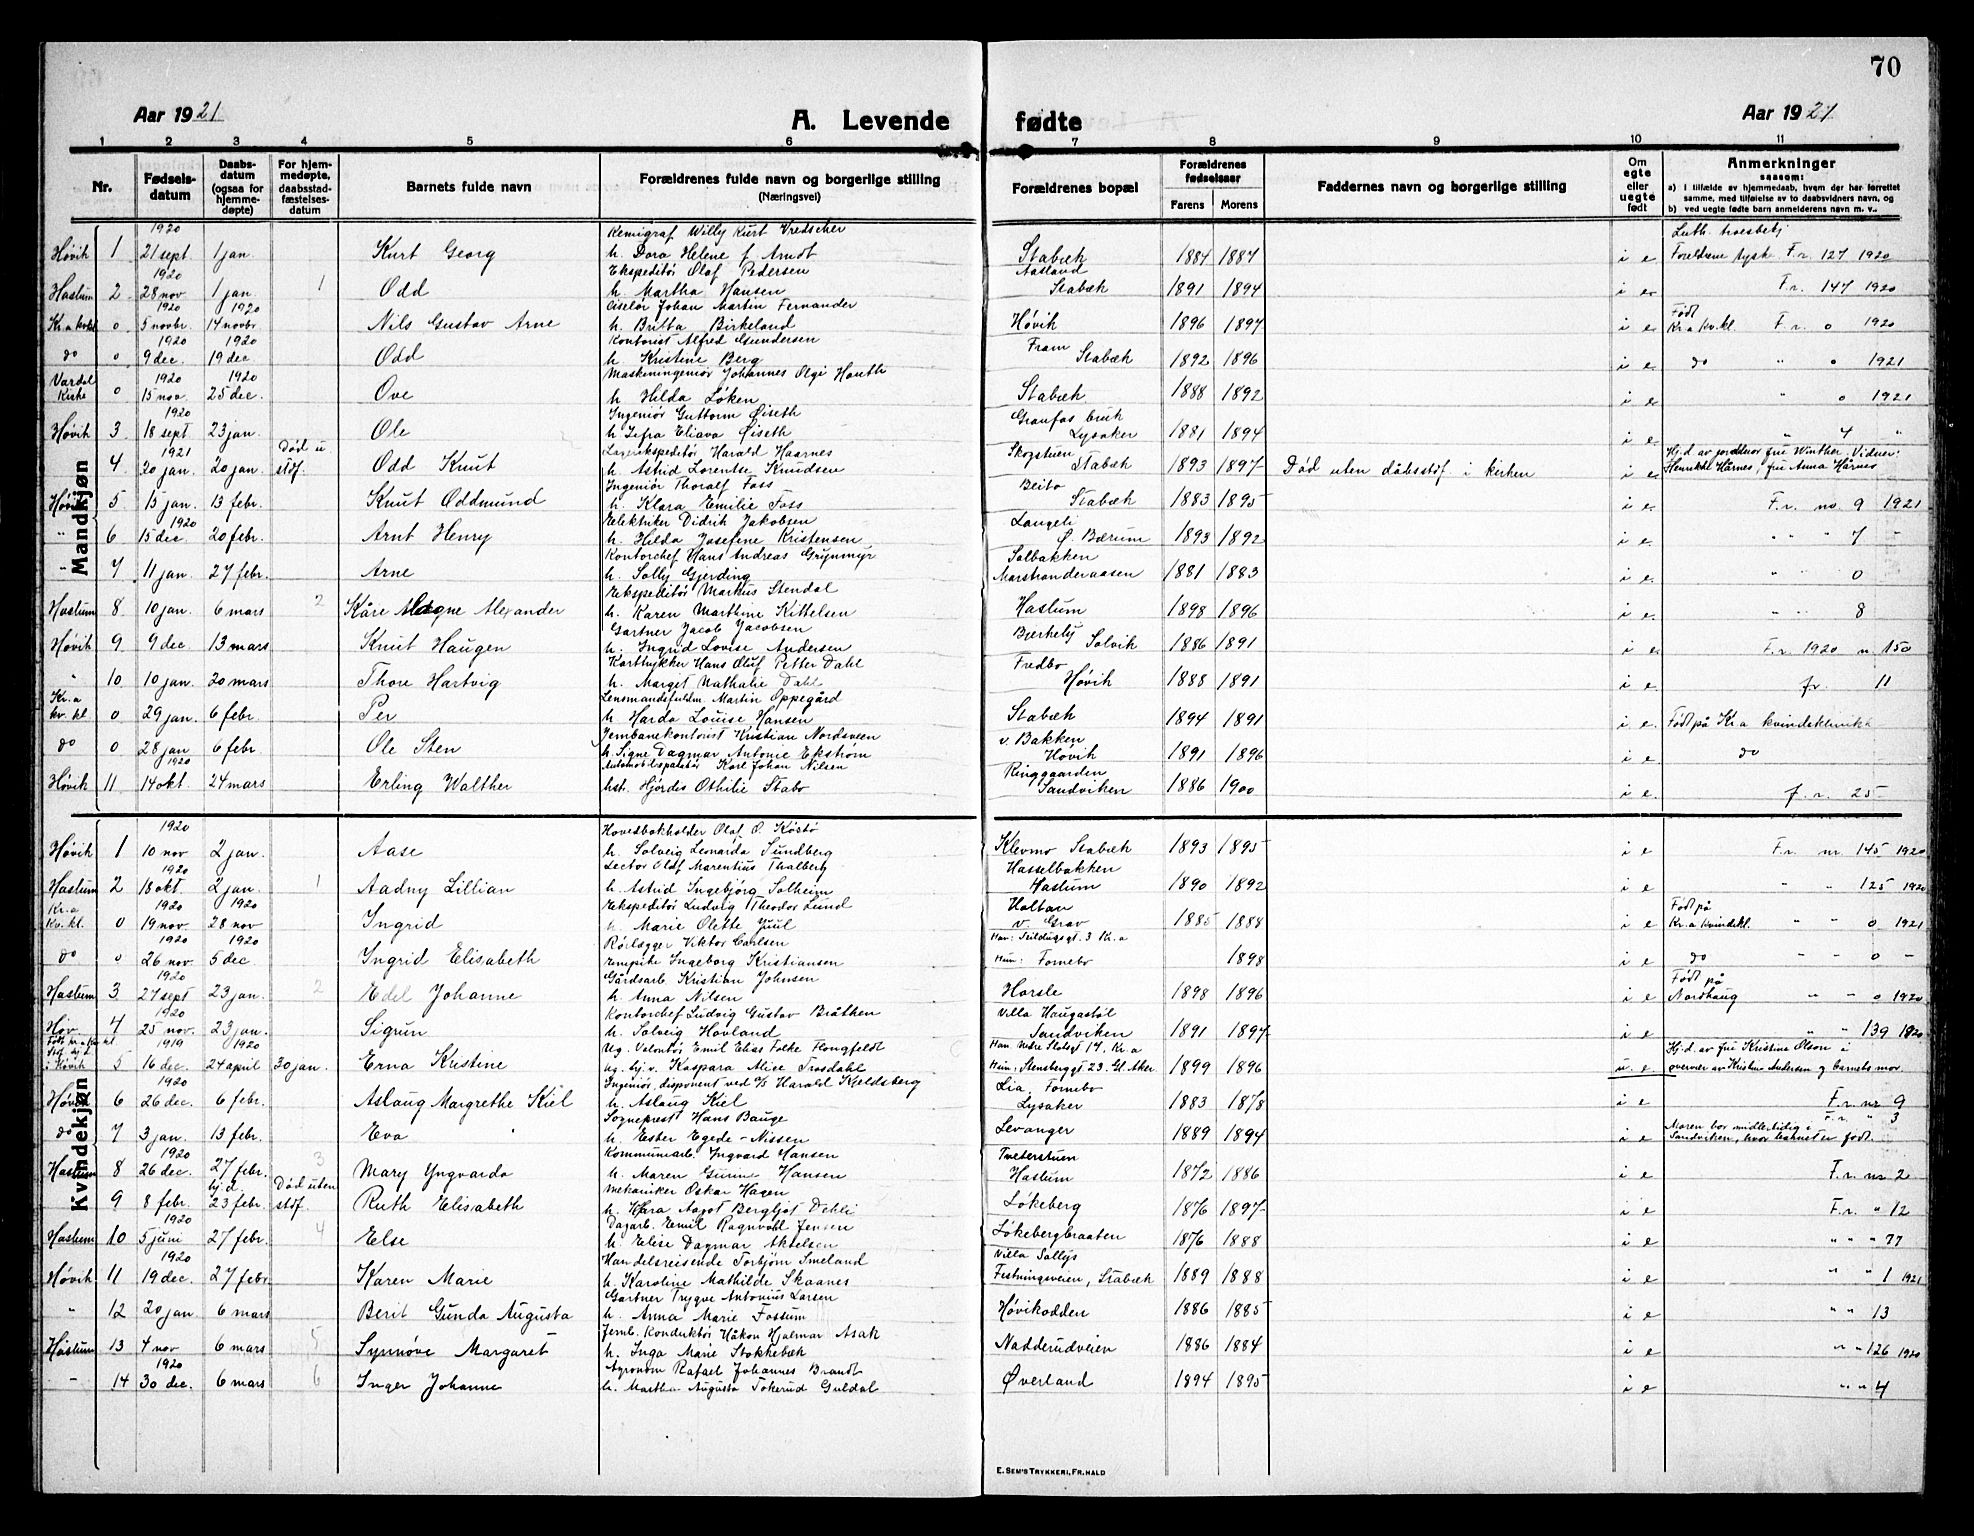 70
Aar 1921
A. Levende
fødte
Aar 1921
1 2 3 4 5 6 7 8 9 10 11
Nr.
Fødsels-
datum
Daabs-
datum
(ogsaa for
hjemme-
døpte)
For hjem-
medøpte,
daabsstad-
fæstelses-
datum
Barnets fulde navn
Forældrenes fulde navn og borgerlige stilling
(Næringsvei)
Forældrenes bopæl
Forældrenes
fødselsaar
Farens Morens
Faddernes navn og borgerlige stilling
Om
egte
eller
uegte
født
Anmerkninger
saasom:
a) i tilfælde av hjemmedaab, hvem der har forrettet
samme, med tilføielse av to daabsvidners navn, og
b) ved uegte fødte barn anmelderens navn m. v.
Mandkjøn
1920 Kemigraf Willy Kurt Vretscher Luth.
Høvik 1 21 sept 1 jan. Kurt Georg h. Dora Helene f. Arndt Stabæk 1884 1887 i e Foreldrene tysk F.r. 127 1920
1920 Ekspeditør Olaf Pedersen Aasland
Haslum 2 28 nov 1 jan. 1 Odd h. Martha Hansen Stabæk 1891 1894 i e F.r. 147 1920
1920 1920 Ciselør Johan Martin Fernander Født
Kr.a kv.kl 0 5 novbr. 14 novbr Nils Gustav Arne h. Britta Birkeland Høvik 1896 1897 i e Kr.a kv.kl. F.r. 0 1920
1920 1920 Kontorist Alfred Gundersen Fram
do 0 9 dec. 19 dec. Odd h. Kristine Berg Stabæk 1892 1896 i e do " 0 1921
Vardal 1920 1920 Maskiningeniør Johannes Olgi Houth
Kirke 0 15 nov. 25 dec. Ove h. Hilda Løken Stabæk 1888 1892 i e " 0 1921
1920 Ingeniør Guttorm Øiseth Granfos bruk
Høvik 3 18 sept 23 jan. Ole h. Eliava Øiseth Lysaker 1881 1894 i e " 4 "
1921 Død u Lagerekspeditør Harald Haarnes Skogstuen Hj.d av jordmor fru Winther. Vidner:
4 20 jan. 20 jan. stdf. Odd Knut h. Astrid Lorentse Knudsen Stabæk 1893 1897 Død uten dåbsstdf i kirken i e Henrikke Hårnes, fru Anna Hårnes
Ingeniør Thoralf Foss Beito
Høvik 5 15 jan. 13 febr. Knut Oddmund h. Klara Emilie Foss Stabæk 1883 1895 i e F.r. no 9 1921
1920 Elektriker Didrik Jakobsen Langeli
" 6 15 dec. 20 febr. Arnt Henry h. Hilda Josefine Kristensen Ø. Bærum 1893 1892 i e. " " " 7 "
Kontorchef Hans Andreas Grynmyr Solbakken
" 7 11 jan. 27 febr. Arne h. Solly Gjerding Marstranderaasen 1881 1883 i e " " 0
Ekspeditør Markus Stendal
Haslum 8 10 jan. 6 mars 2 Kåre Magne Alexander h. Karen Marthine Kittelsen Haslum 1898 1896 i e " " 8
Gartner Jacob Jacobsen Bjerkely
Høvik 9 9 dec. 13 mars Knut Haugen h. Ingrid Lovise Andersen Solvik 1886 1891 i e F.r. 1920 n. 150
Karttrykker Hans Oluf Petter Dahl Fredbo
" 10 10 jan. 20 mars Thore Hartvig h. Margit Nathalie Dahl Høvik 1888 1891 i e fr. 11
Kr.a Lensmandsfuldm. Martin Oppegård
kv. kl 0 29 jan. 6 febr. Per h Harda Louise Hansen Stabæk 1894 1891 i e. Født på Kr.a kvindeklinikk
Jernbanekontorist Kristian Nordsveen v. Bakken
do 0 28 jan 6 febr Ole Sten h. Signe Dagmar Antonie Ekstrøm Høvik 1891 1896 i e do
1920 Karl Johan Nilsen Ringgaarden
Høvik 11 14 okt. 24 mars Erling Walther hst. Hjørdis Othilie Stabo Sandviken 1886 1900 i e. f. r. 25
Kvindekjøn
1920 Hovedbokholder Olaf O. Køstø
Høvik 1 10 nov 2 jan. Aase h. Solveig Leonarda Sundberg Klevmo Stabæk 1893 1895 i e F.r. nr 145 1920
1920 Lector Olaf Marentius Thalberg Hasselbakken
Haslum 2 18 okt. 2 jan. 1 Aadny Lillian h. Astrid Ingebjørg Solheim Haslum 1890 1892 i e " " 125 1920
Kr.a 1920 1920 Ekspeditør Ludvig Theodor Lund Holtan Født på
kv. kl. 0 19 nov. 28 nov Ingrid h Marie Olette Juul v. Grav 1885 1888 i e Kr.a kvindekl. " " 0 1921
1920 1920 Rørlægger Viktor Carlsen Han: Skildusgt. 3 Kr.a
do 0 26 nov. 5 dec. Ingrid Elisabeth Ernpike Ingeborg Kristiansen Hun: Fornebo 1898 i e do " " 0 -
1920 Gårdsarb. Kristian Johnsen Født på
Haslum 3 27 sept 23 jan. 2 Edel Johanne h. Anna Nilsen Horsle 1898 1896 i e Nordhaug " " 0 1920
1920 Kontorchef Ludvig Gustav Bråthen Villa Haugastøl
Høv. 4 25 nov. 23 jan. Sigrun h. Solveig Hovland Sandviken 1891 1897 i e " " 139 1920
1919 1920 Ug. Volontør Emil Elias Folke Flongfeldt Han: Nedre Slotsgt 17. Kr.a Hj.d. av fru Kristine Olson i
i Høvik 5 16 dec. 24 april 30 jan. Erna Kristine ug. hj.v. Kaspara Alice Trosdahl Hun: Stensberggt 23. V. Aker 1899 1896 u. e. overvær av Kristine Andersen og barnets mor.
1920 Ingeniør, disponent ved a/s Harald Kjeldsberg Lia, Fornebo
Høvik 6 26 dec. 6 febr. Aslaug Margrethe Kiel h. Aslaug Kiel Lysaker 1883 1878 i e F.r. nr 9
Sogneprest Hans Bauge Moren bor midlertidig i F.r. " 3
do 7 3 jan. 13 febr. Eva h. Ester Egede-Nissen Levanger 1889 1894 i e Sandviken, hvor barnet er født.
1920 Kommunearb. Ingvard Hansen Tveterstuen
Haslum 8 26 dec. 27 febr. 3 Mary Yngvarda h. Maren Gurin Hansen Haslum 1872 1886 i e F.r. nr. 2
hj.d. Død uten Mekaniker Oskar Hagen
9 8 febr. 23 febr. stdf. Ruth Elisabeth h. Klara Aagot Bergljot Dehli Løkeberg 1876 1897 i e F.r. " 12
1920 Dagarb. Emil Ragnvald Jensen
Haslum 10 5 juni 27 febr. 4 Else h. Elise Dagmar Akselsen Løkebergbraaten 1876 1888 i e " " " 77
1920 Handelsreisende Torbjørn Smeland Villa Sollys
Høvik 11 19 dec. 27 febr Karen Marie h. Karoline Mathilde Skaanes Festningsveien, Stabæk 1889 1888 i e " " 1 1921
Gartner Trygve Antonius Larsen
" 12 20 jan 6 mars Berit Gunda Augusta h. Anna Marie Fossum Høvikodden 1886 1885 i e " " 13
Jernb. Konduktør Håkon Hjalmar Asak
Haslum 13 4 nov 6 mars 5 Synnøve Margaret h. Inga Marie Stokkebæk Nadderudveien 1886 1884 i e " " 126 1920
1920 Agronom Rafael Johannes Brandt
" 14 30 dec. 6 mars 6 Inger Johanne h. Martha Augusta Tokerud Guldal Øverland 1894 1895 i e " " 4
E. SEM'S TRYKKERI, FR.HALD